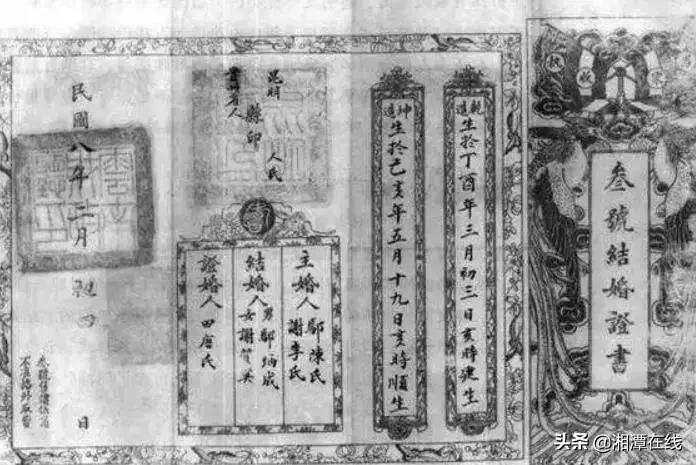 叁號結婚證書
乾造 生於丁酉年三月初三日亥時建生
坤造 生於己亥年五月十九日亥時順生
昆明
縣印
人民
主婚人 鄢陳氏
謝李氏
結婚人 男鄢炳成
女謝英
證婚人 田唐氏
民國八年二月初四日
头条 @湘潭在线